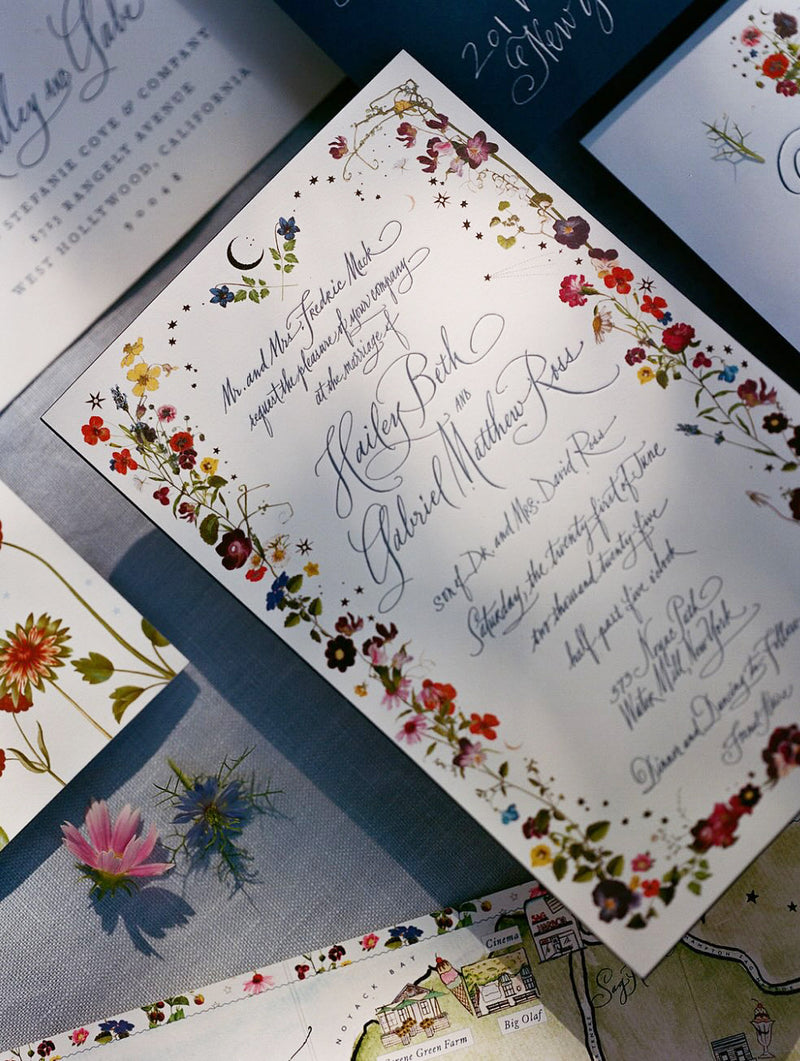 Mr. and Mrs. Fredric Mack
request the pleasure of your company
at the marriage of
Hailey Beth
AND
Gabriel Matthew Ross
son of Dr. and Mrs. David Ross
Saturday, the twenty first of June
two thousand twenty five
half past five o'clock
373 Noyac Path
Water Mill, New York
Dinner and Dancing to Follow
Formal Attire
AND Gabe
STEFANIE COVE & COMPANY
RANGELY AVENUE
WEST HOLLYWOOD, CALIFORNIA
90048
201
New
NOYACK BAY
Cinema
SAG HARBOR
Big Olaf
Serene Green Farm